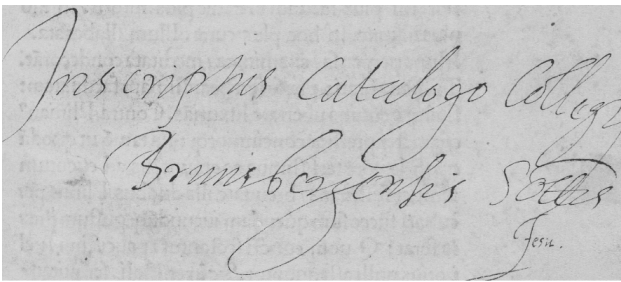 Inscriptus Catalogo Collegij
Brunsbergensis Sottis
Jesu.